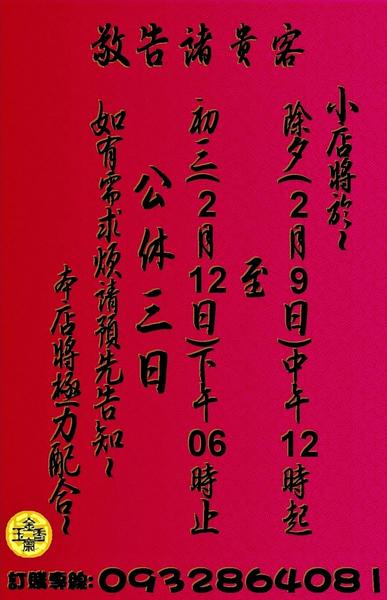 敬告諸貴客
小店將於~
除夕(2月9日)中午12時起
至
初三(2月12日)下午06時止
公休三日
如有需求煩請預先告知~
本店將極力配合~
金玉香齋
訂購專線:0932864081